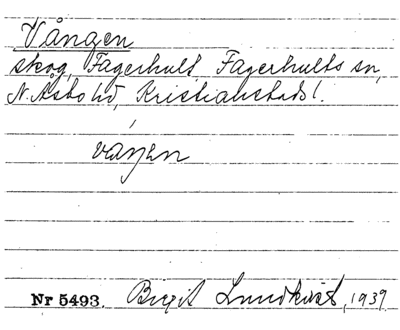 Vången
skog, Fagerhult, Fagerhults sn,
N. Åsbo hd, Kristianstads l.
váŋen
Nr 5493. Birgit Lundkvist, 1939